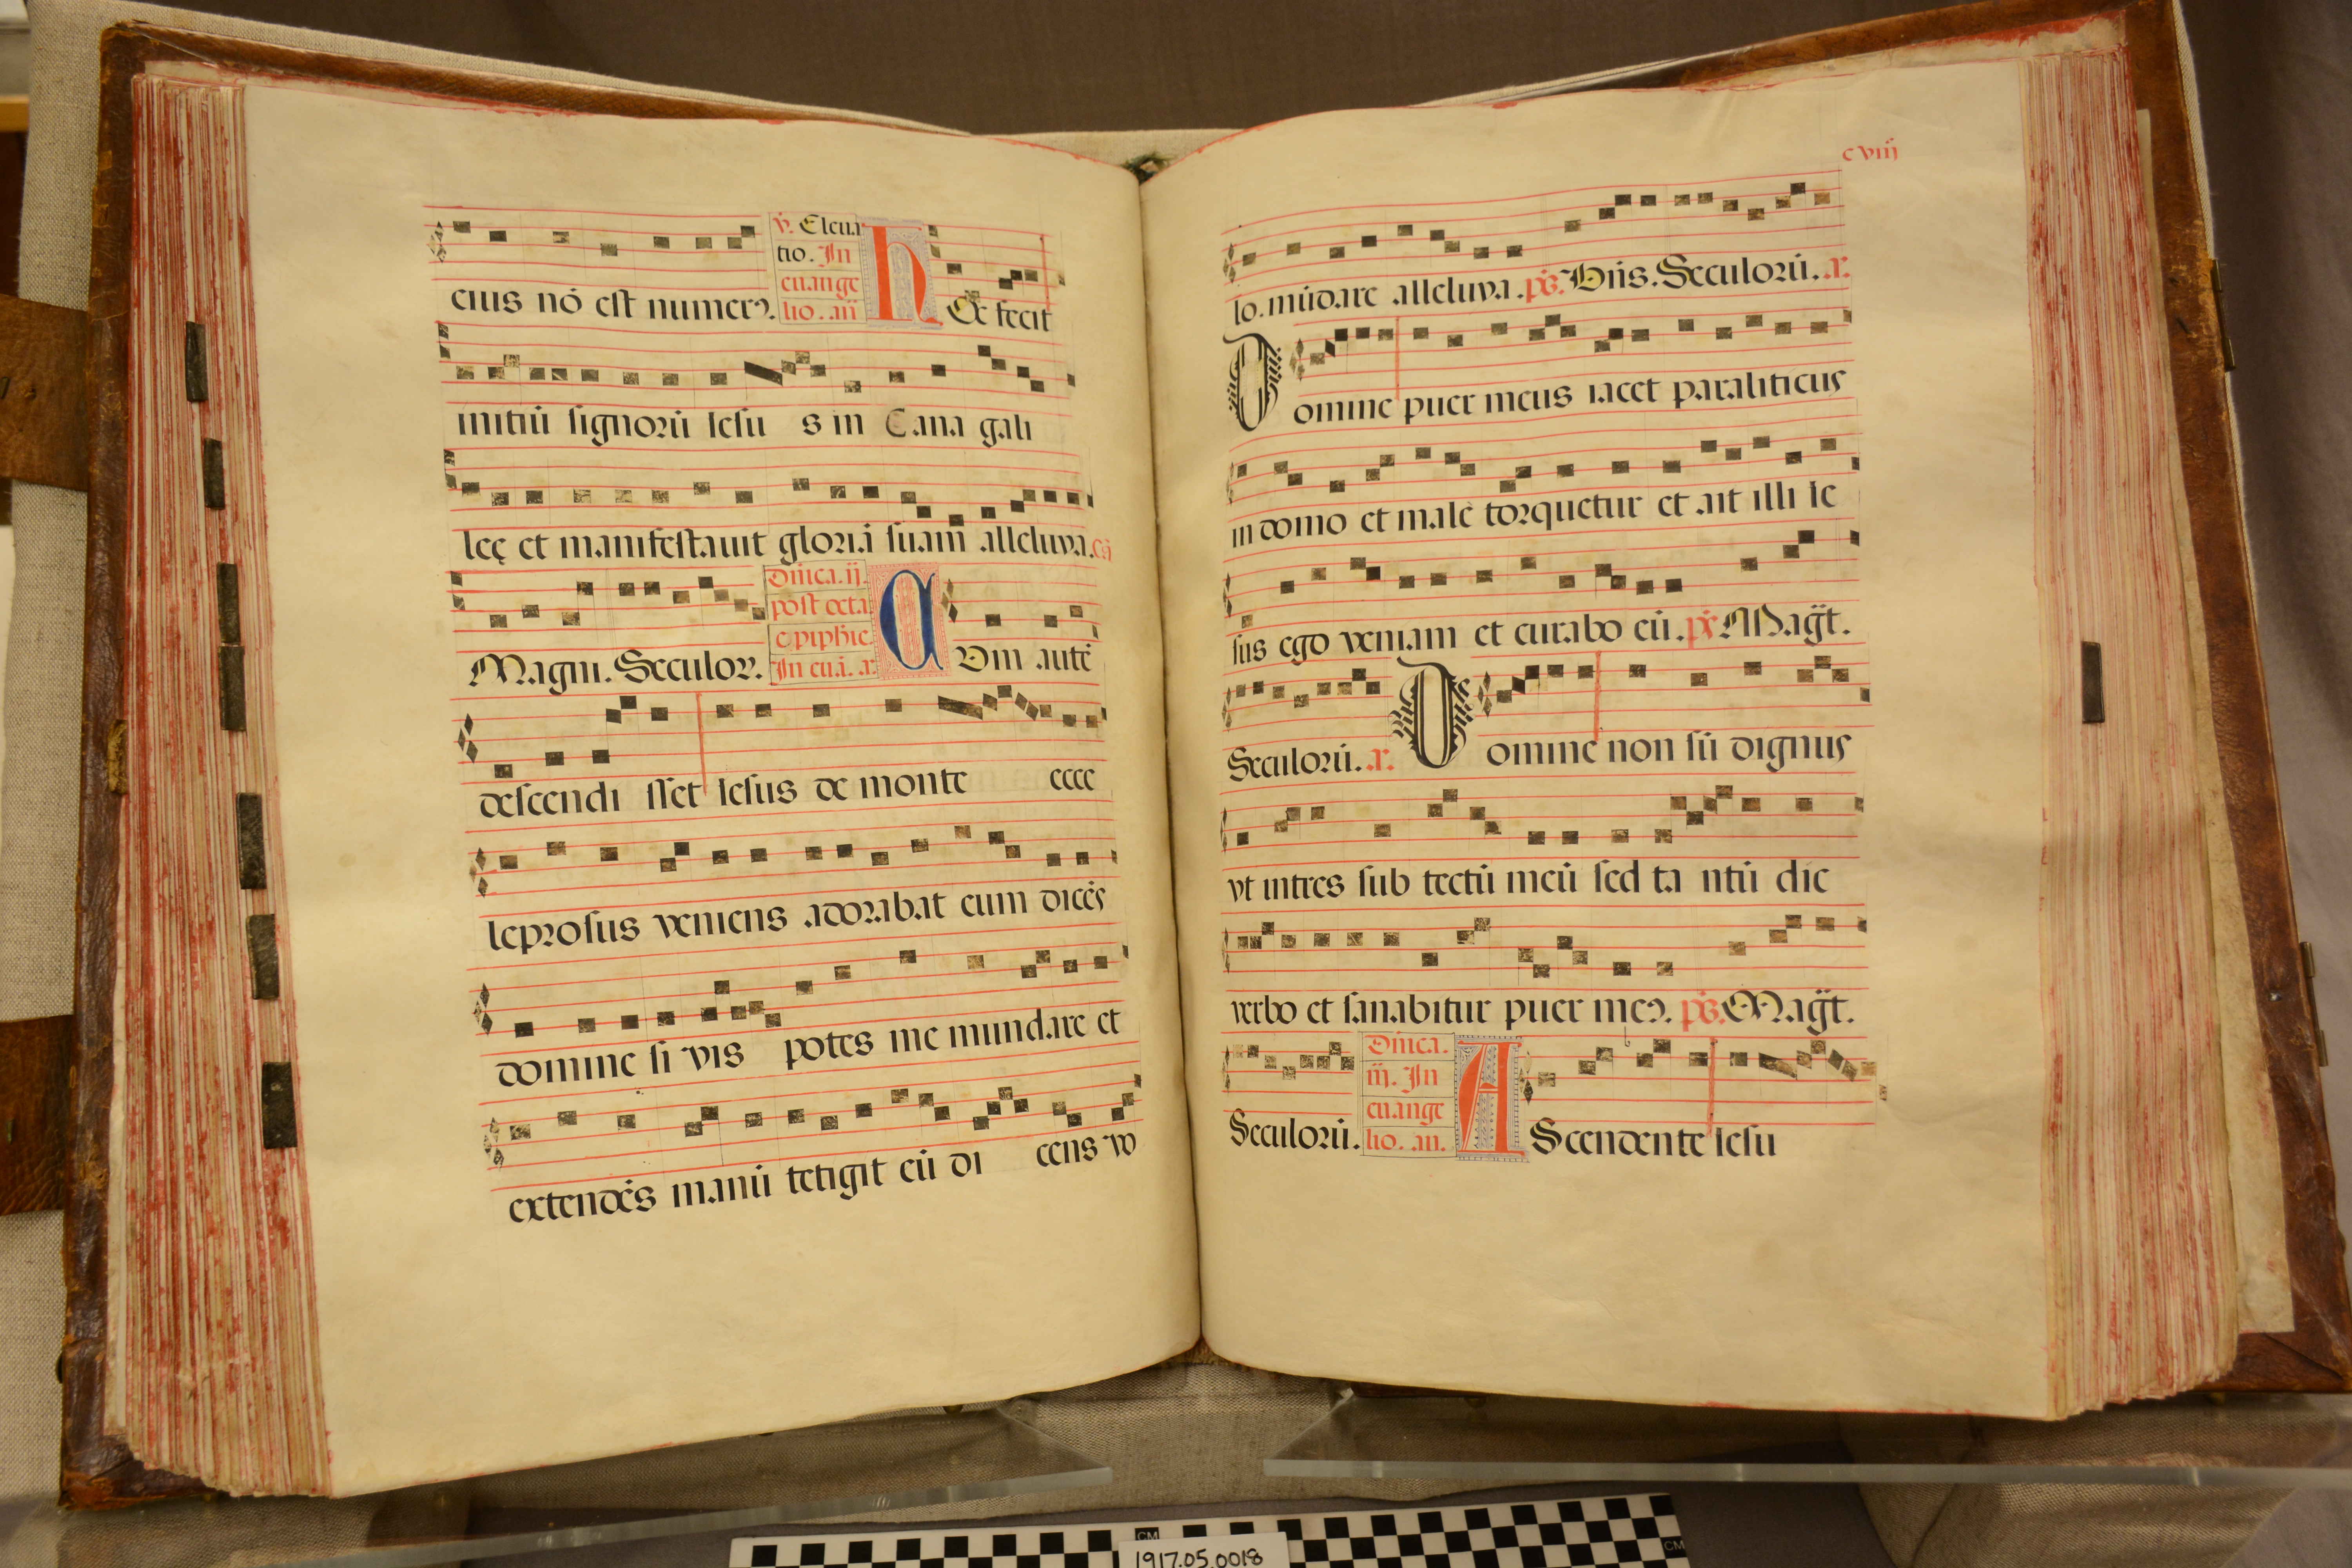 eius nó est numerꝯ.
ỹ. Eleua
tio. In
euange
lio. añ
H
Ec fecit
initiũ signorũ iesu s in Cana gali
leę et manifestauit gloriã suam alleluya.
Magni. Seculoꝝ.
Dñica. ij.
post octa
epiphie.
In eu.a. a.
C
Vm autē
descendi sset iesus de monte ecce
leprosus veniens adorabat eum dicēs
domine si vis potes me mundare et
extendēs manũ tetigit eũ di cens vo
c viiij
lo. mũdare alleluya. ps. Dñs. Seculorũ. a.
D
omine puer meus iacet paraliticus
in domo et male torquetur et ait illi ie
sus ego veniam et curabo eũ. ps Magt̃.
Seculorũ. a.
D
omine non sũ dignus
vt intres sub tectũ meũ sed ta ntũ dic
verbo et sanabitur puer meꝯ. ps. Magt̃.
Seculorũ.
Dñica.
iij. In
euange
lio. an.
A
Scendente iesu
CM
CM
1917.05.0018